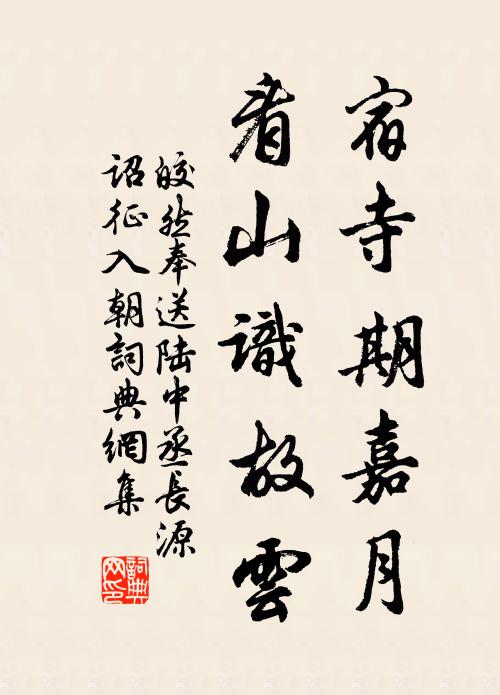 宿寺期嘉月
看山識故雲
皎然奉送陸中丞長源
詔征入朝詞典網集
詞典
网印